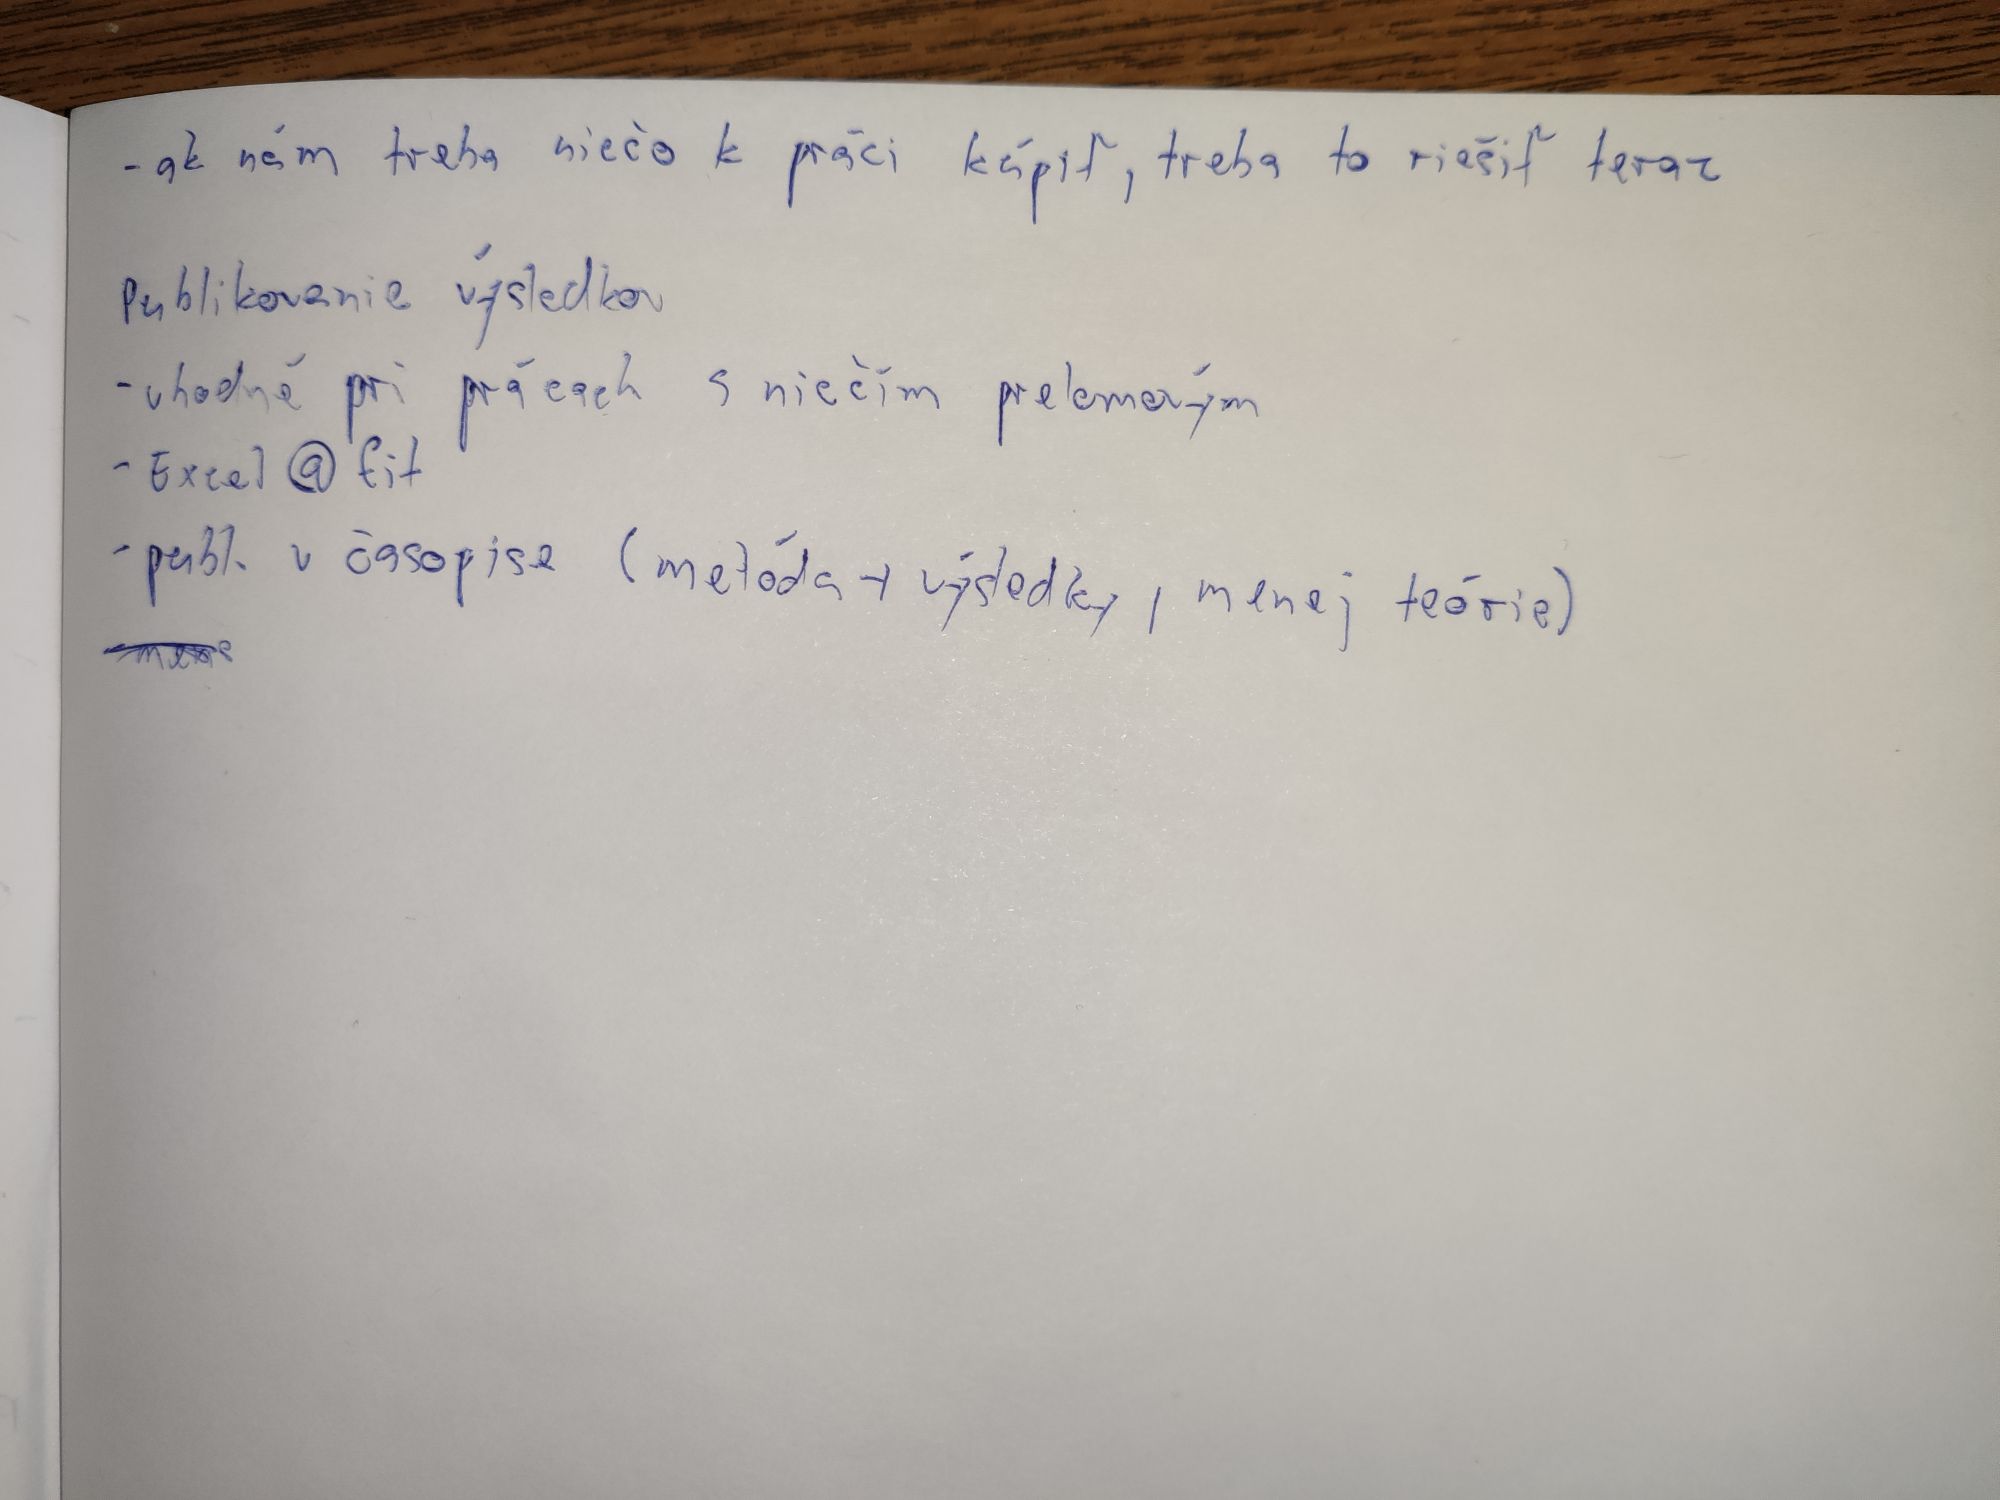 - ak nám treba niečo k práci kúpiť, treba to riešiť teraz
Publikovanie výsledkov
- vhodné pri prácach s niečím prelomovým
- Excel@fit
- publ. v časopise (metóda + výsledky, menej teórie)